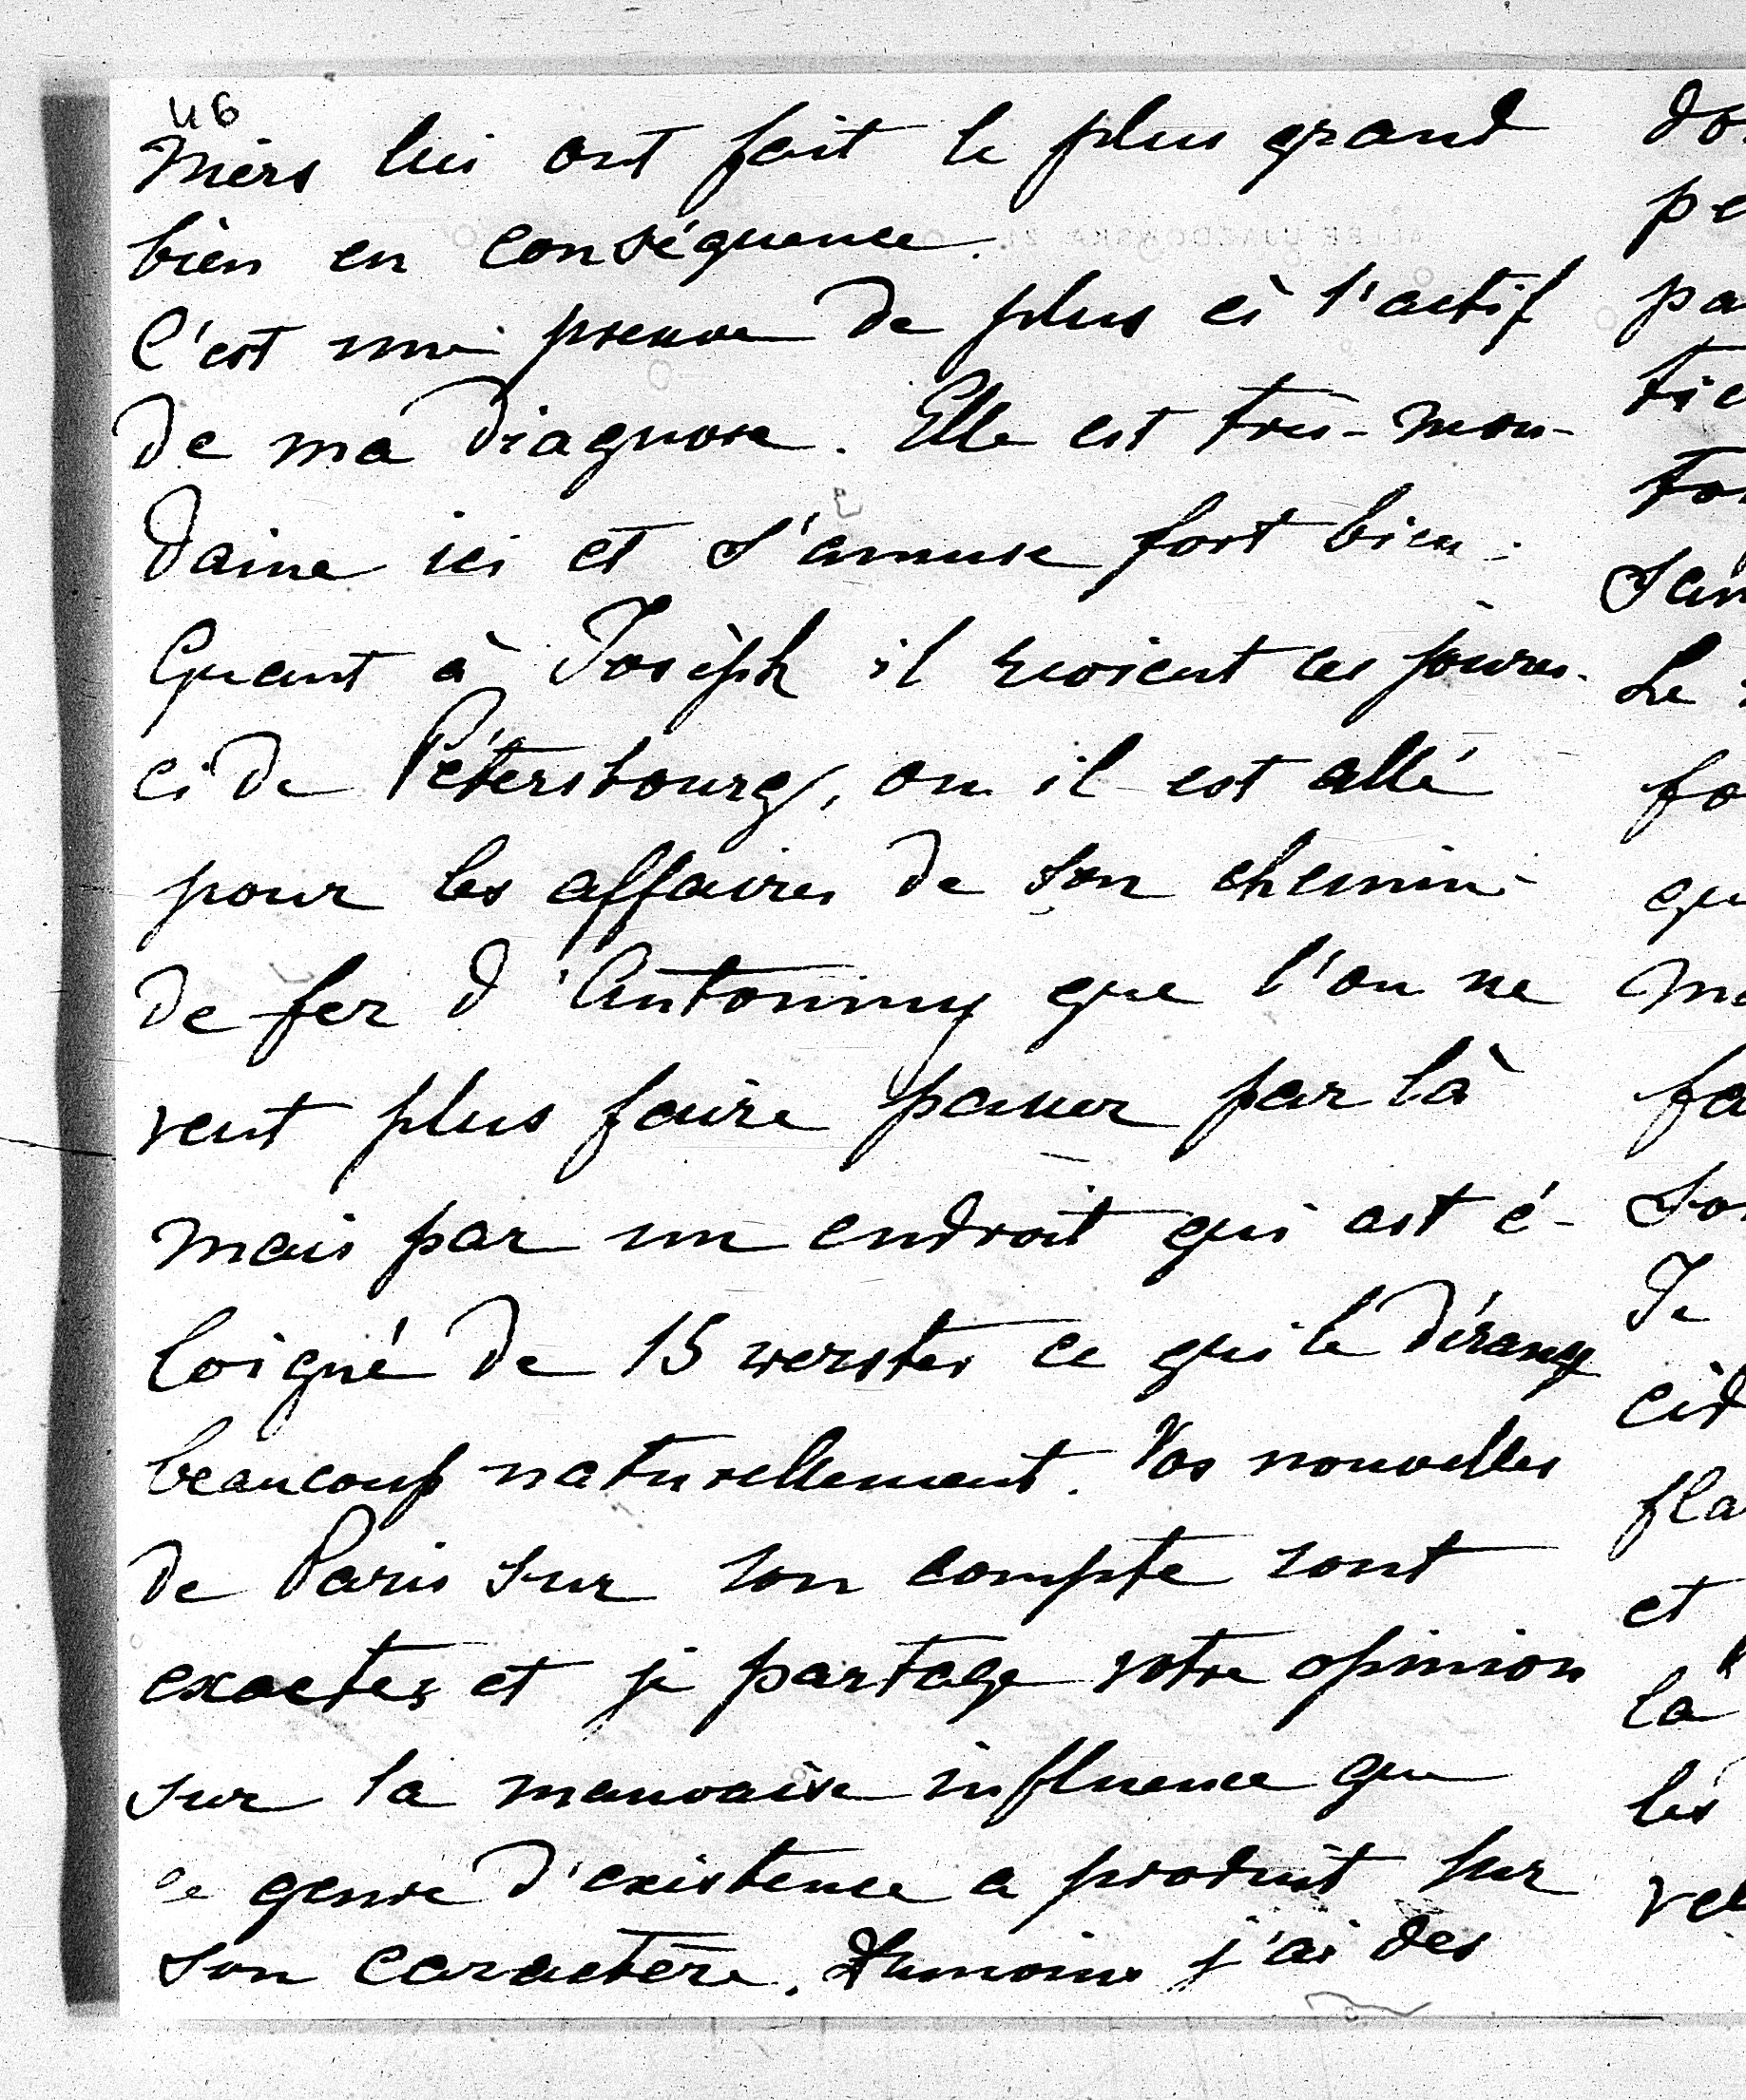 46
miers lui ont fait le plus grand
bien en conséquence.
C'est une preuve de plus à l'actif
de ma diagnose. Elle est très-mon-
daine ici et s'amuse fort bien.
Quant à Joseph il revient ces jours-
ci de Pétersbourg, ou il est allé
pour les affaires de son chemin-
de fer d'Antoniny que l'on ne
veut plus faire passer par là
mais par un endroit qui est é-
loigné de 15 werstes ce qui le dérange
beaucoup naturellement. Vos nouvelles
de Paris sur son compte sont
exactes et je partage votre opinion
sur la mauvaise influence que
ce genre d'existence a produit sur
son caractère. Dumoins j'ai des